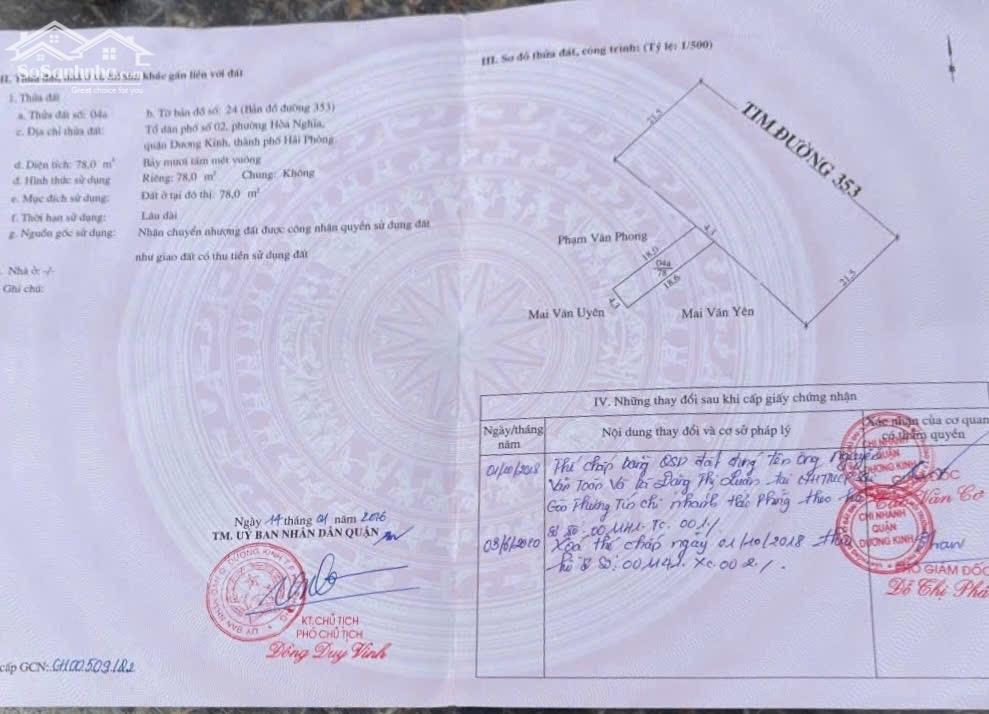 SoSanhnha.com
Great choice for you
II. Thửa đất, nhà ở và tài sản khác gắn liền với đất
1. Thửa đất
a. Thửa đất số: 04a
b. Tờ bản đồ số: 24 (Bản đồ đường 353)
c. Địa chỉ thửa đất:
Tổ dân phố số 02, phường Hòa Nghĩa,
quận Dương Kinh, thành phố Hải Phòng.
d. Diện tích: 78,0 m²
Bảy mươi tám mét vuông
đ. Hình thức sử dụng
Riêng: 78,0 m² Chung: Không
e. Mục đích sử dụng:
Đất ở tại đô thị: 78,0 m²
f. Thời hạn sử dụng:
Lâu dài
g. Nguồn gốc sử dụng:
Nhận chuyển nhượng đất được công nhận quyền sử dụng đất
như giao đất có thu tiền sử dụng đất
. Nhà ở: -/-
Ghi chú:
Ngày 14 tháng 01 năm 2016
TM. UỶ BAN NHÂN DÂN QUẬN
KT. CHỦ TỊCH
PHÓ CHỦ TỊCH
Đông Duy Vinh
cấp GCN: CH00509182
III. Sơ đồ thửa đất, công trình: (Tỷ lệ: 1/500)
TIM ĐƯỜNG 353
21,5
21,5
Phạm Văn Phong
4,3
18,0
04a
78
18,6
4,3
Mai Văn Uyên
Mai Văn Yên
IV. Những thay đổi sau khi cấp giấy chứng nhận
Ngày/tháng
năm
Nội dung thay đổi và cơ sở pháp lý
Xác nhận của cơ quan
có thẩm quyền
01/10/2018 Thế chấp bằng QSD đất đứng tên ông Nguyễn
Văn Toán và bà Đặng Thị Luân tại
Gòn Thương Tín chi nhánh Hải Phòng theo
số
03/6/2020 Xóa thế chấp ngày 01/10/2018 theo
hồ sơ số:
CHI NHÁNH
QUẬN
DƯƠNG KINH
CHI NHÁNH
QUẬN
DƯƠNG KINH
PHÓ GIÁM ĐỐC
Đỗ Thị